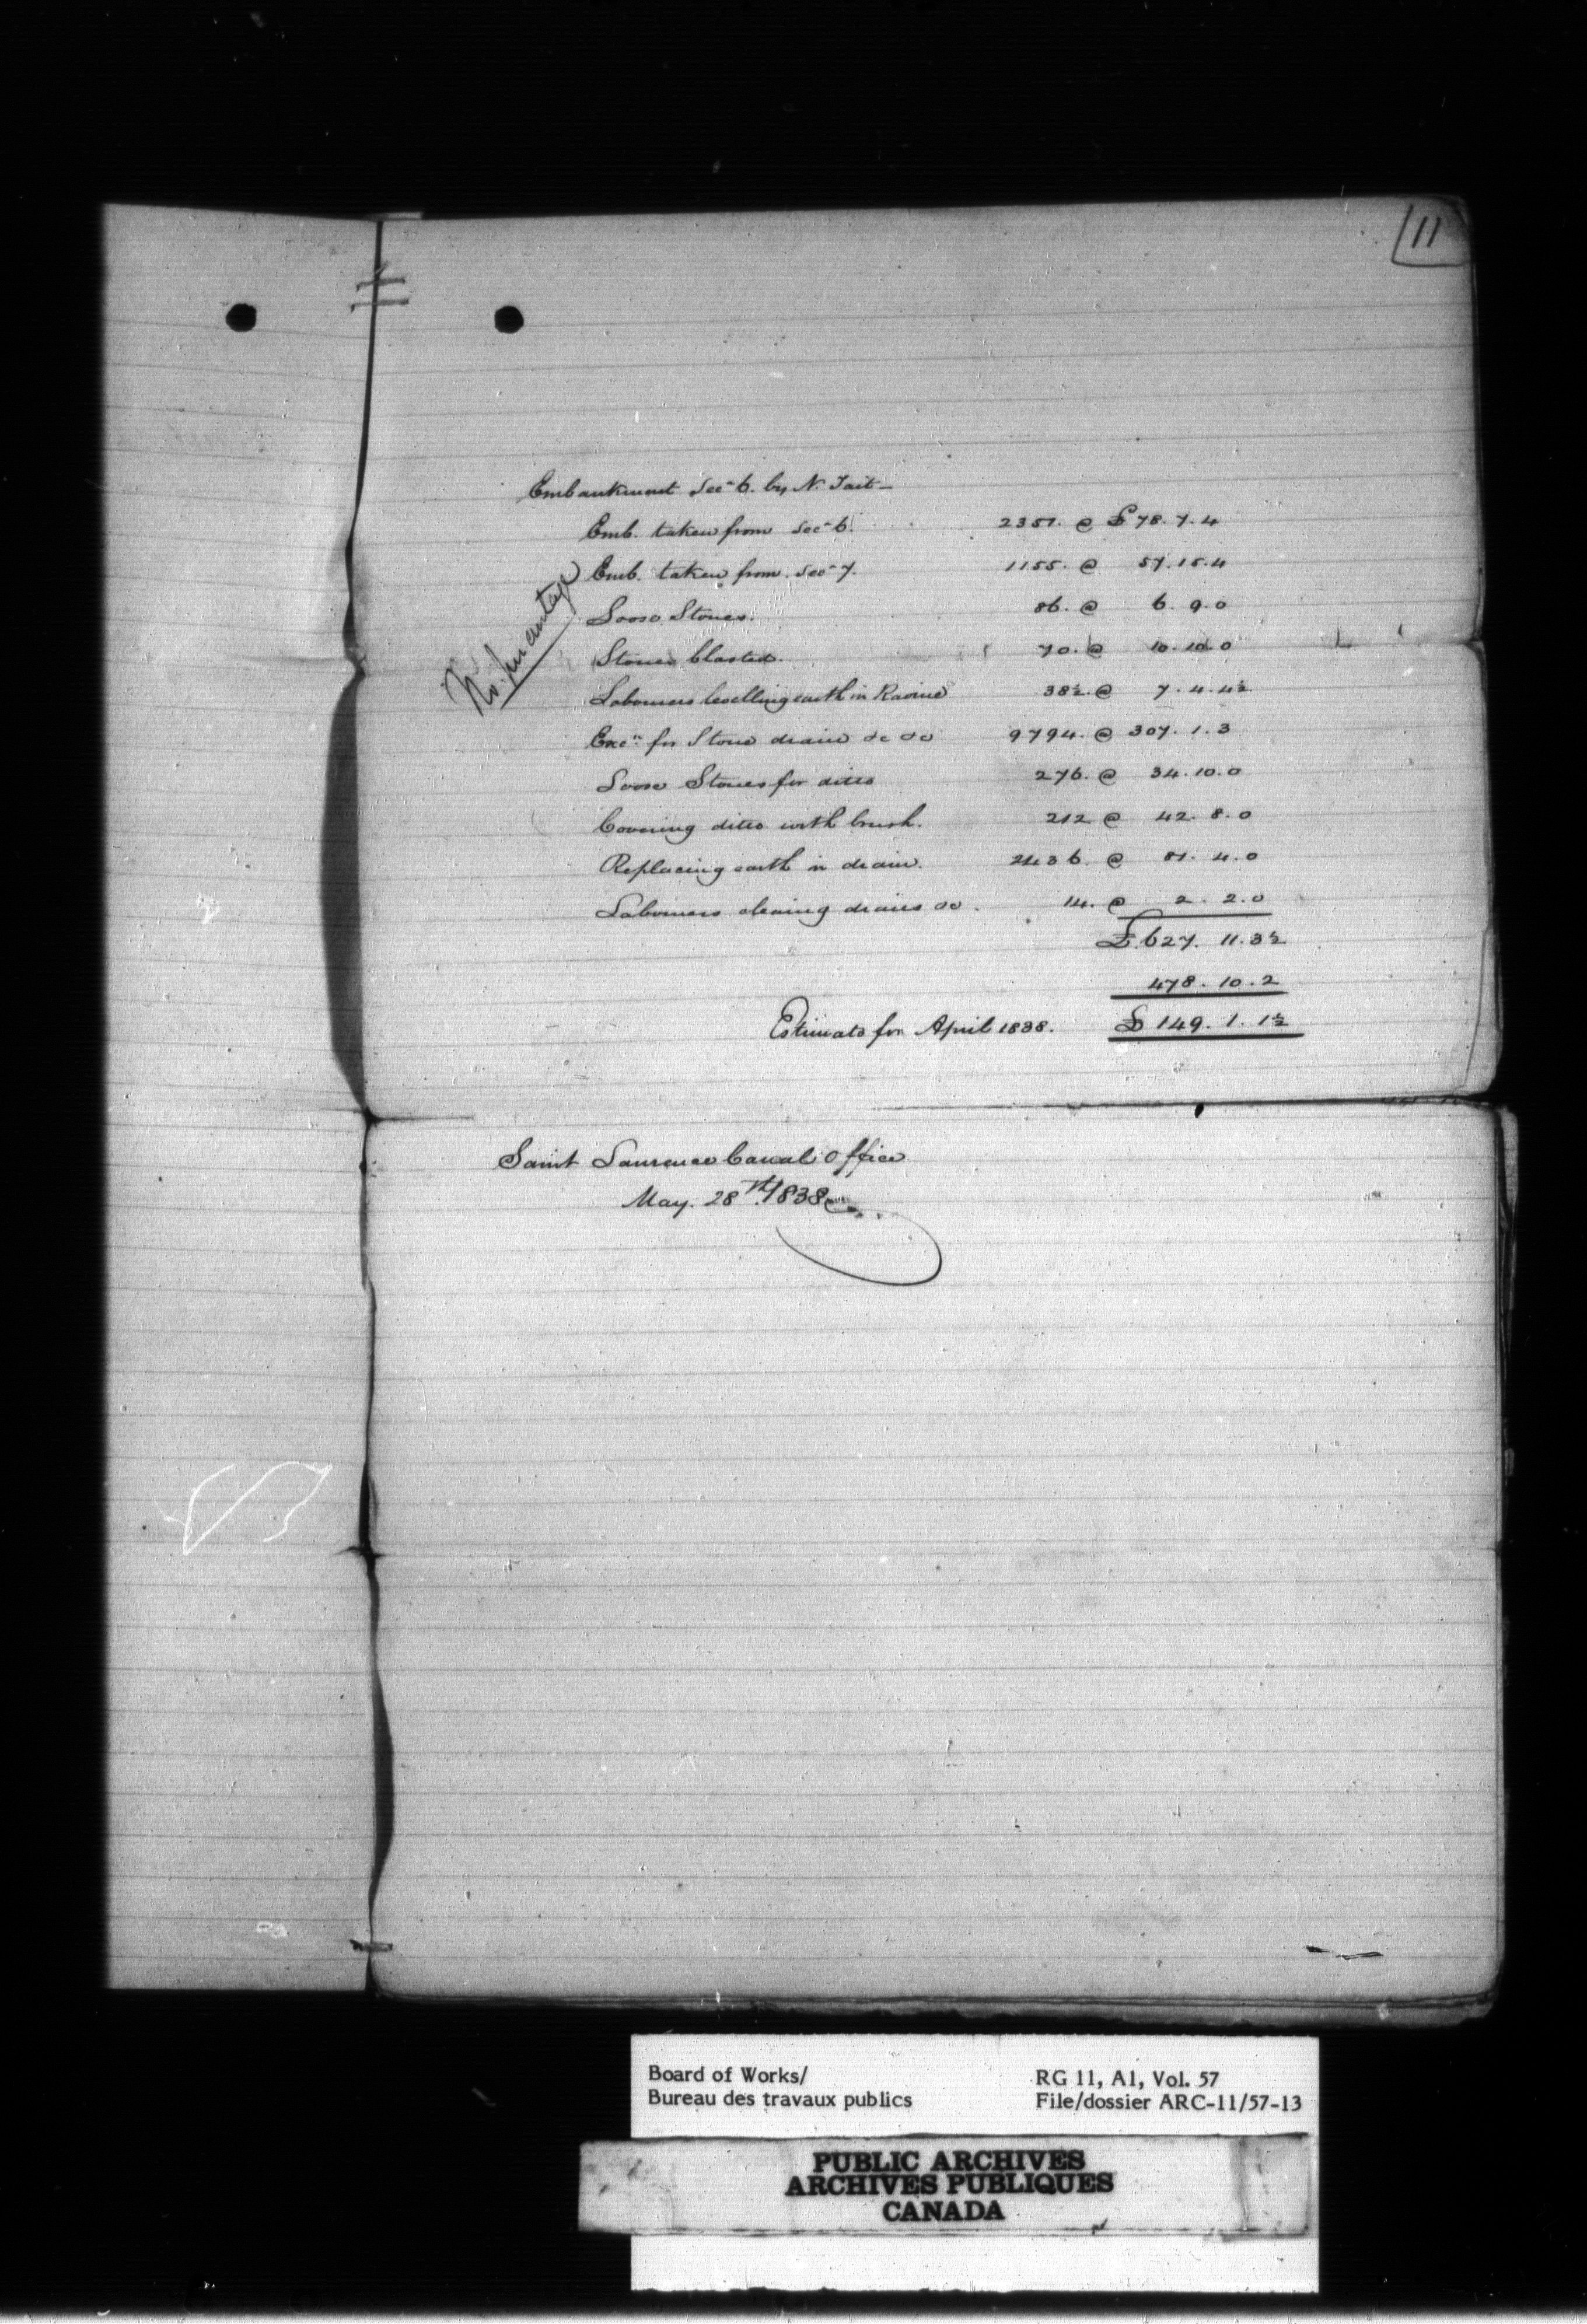 11
Embankment Secn 6. by N. Tait –
Emb. taken from Secn 6. 2351. @ £78.7.4
Emb. taken from Secn 7. 1155. @ 57.15.4
Loose Stones. 86. @ 6.9.0
Stones blasted. 70. @ 10.10.0
Labourers levelling earth in Ravine 38½ @ 7.4.4½
Excn for Stone drain &c &c 9794. @ 307.1.3
Loose Stones for ditto 276. @ 34.10.0
Covering ditto with brush. 212 @ 42.8.0
Replacing earth in drain. 2436 @ 81.4.0
Labourers clearing drains &c. 14. @ 2.2.0
£.627.11.3½
478.10.2
Estimate for April 1838. £149.1.1½
No. per centage
Saint Lawrence Canal Office
May. 28th 1838
Board of Works/
Bureau des travaux publics
RG 11, A1, Vol. 57
File/dossier ARC-11/57-13
PUBLIC ARCHIVES
ARCHIVES PUBLIQUES
CANADA